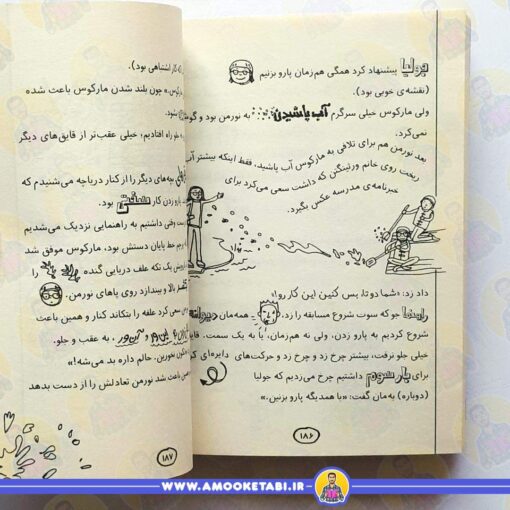 جولیا پیشنهاد کرد همگی هم‌زمان پارو بزنیم
(نقشه‌ی خوبی بود).
ولی مارکوس خیلی سرگرم آب پاشیدن به نورمن بود و گوش
نمی‌کرد.
بعد نورمن هم برای تلافی به مارکوس آب پاشید، فقط اینکه بیشتر آب
ریخت روی خانم ورتینگتن که داشت سعی می‌کرد برای
خبرنامه‌ی مدرسه عکس بگیرد.
داد زد: «شما دوتا، بس کنین این کار رو!»
جو که سوت شروع مسابقه را زد، همه‌مان دیوانه
شروع کردیم به پارو زدن، ولی نه هم‌زمان، یا به یک سمت. قایق
خیلی جلو نرفت، بیشتر چرخ زد و چرخ زد و حرکت‌های دایره‌ای
برای بار سوم داشتیم چرخ می‌زدیم که جولیا
(دوباره) به‌مان گفت: «با همدیگه پارو بزنین.»
۱۸۶
کار اشتباهی بود).
چون بلند شدن مارکوس باعث شده
شود.
راه افتادیم؛ خیلی عقب‌تر از قایق‌های دیگر
بچه‌های دیگر را از کنار دریاچه می‌شنیدم که
پارو زدن کار سختی بود.
وقتی داشتیم به راهنمایی نزدیک می‌شدیم
خط پایان دستش بود، مارکوس موفق شد
یک تکه علف دریایی گنده را
بالا و بیندازد روی پاهای نورمن.
سعی می‌کرد علفه را بتکاند کنار و همین باعث
به عقب و جلو.
نخورین، حالم داره بد می‌شه!»
باعث شد نورمن تعادلش را از دست بدهد
۱۸۷
WWW.AMOOKETABI.IR